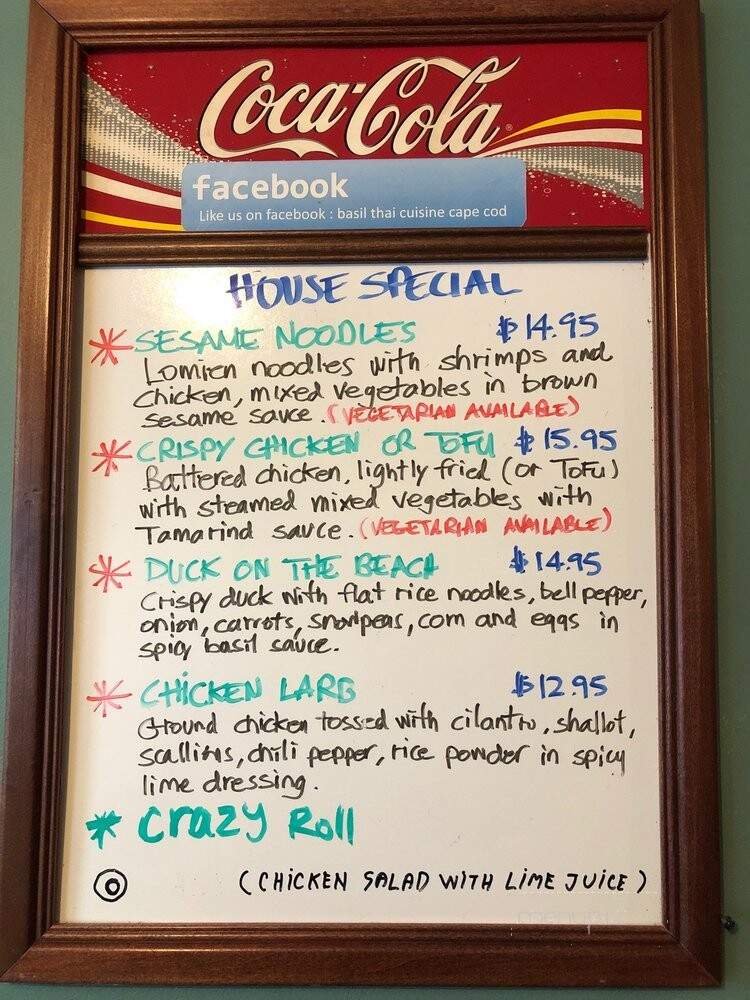 Coca-Cola
facebook
Like us on facebook : basil thai cuisine cape cod
HOUSE SPECIAL
* SESAME NOODLES $14.95
Lomien noodles with shrimps and
chicken, mixed vegetables in brown
sesame sauce. (VEGETARIAN AVAILABLE)
* CRISPY CHICKEN OR TOFU $15.95
Battered chicken, lightly fried (or TOFU)
with steamed mixed vegetables with
Tamarind sauce. (VEGETARIAN AVAILABLE)
* DUCK ON THE BEACH $14.95
Crispy duck with flat rice noodles, bell pepper,
onion, carrots, snowpeas, corn and eggs in
spicy basil sauce.
* CHICKEN LARB $12.95
Ground chicken tossed with cilantro, shallot,
scallions, chili pepper, rice powder in spicy
lime dressing.
* Crazy Roll
(CHICKEN SALAD WITH LIME JUICE)